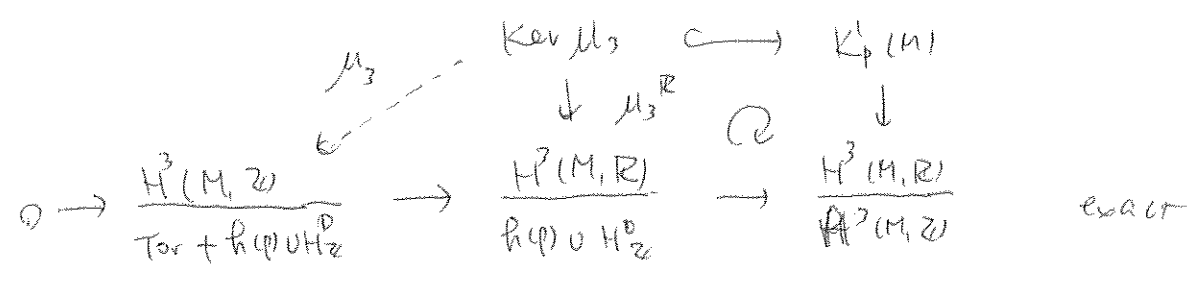 Ker μ₃ ↪ K¹ₚ(M)
μ₃ ↓ μ₃ᴿ ↓
0 → H³(M, ℤ) / Tor + h(p) ∪ H⁰_ℤ → H³(M, ℝ) / h(p) ∪ H⁰_ℤ → H³(M, ℝ) / H³(M, ℤ) exact